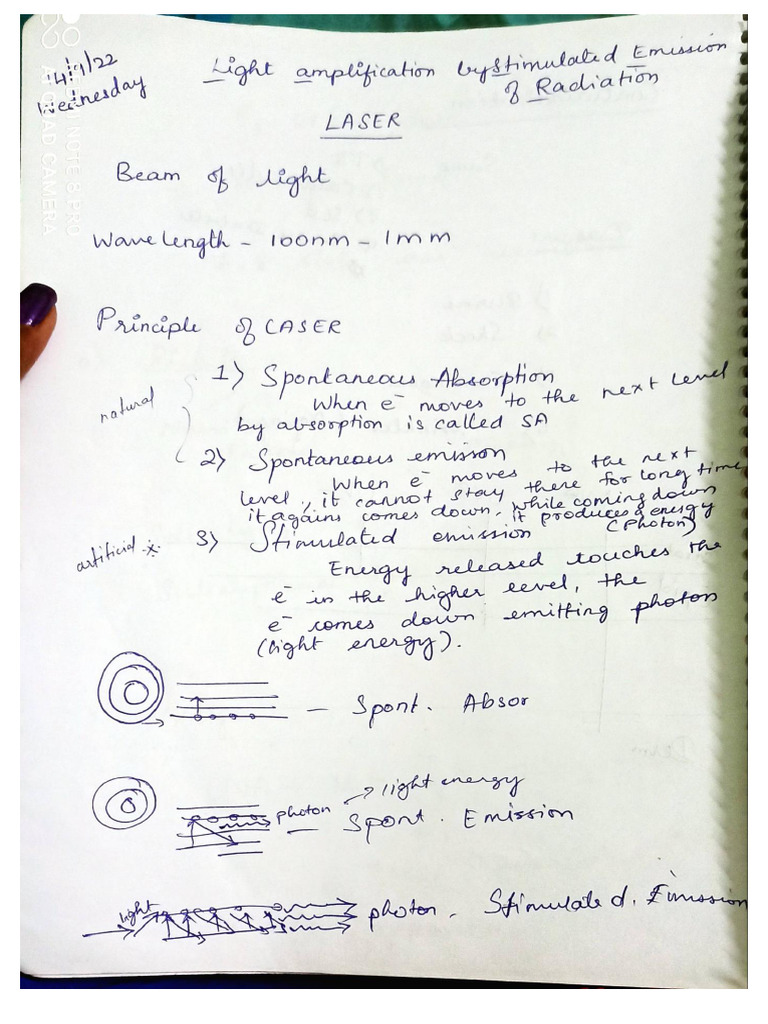 14/9/22
Wednesday
Light amplification by Stimulated Emission
of Radiation
LASER
Beam of light
Wavelength - 100nm - 1mm
Principle of LASER
natural
1) Spontaneous Absorption
When e- moves to the next level
by absorption is called SA
2) Spontaneous emisson
When e- moves to the next
level, it cannot stay there for long time
it agains comes down, while coming down
it produces energy
(Photon)
artificial
3) Stimulated emission
Energy released touches the
e- in the higher level, the
e- comes down emitting photon
(light energy).
- Spont. Absor
photon → light energy
- Spont. Emission
light
photon - Stimulated. Emission
NOTE 8 PRO
AI QUAD CAMERA